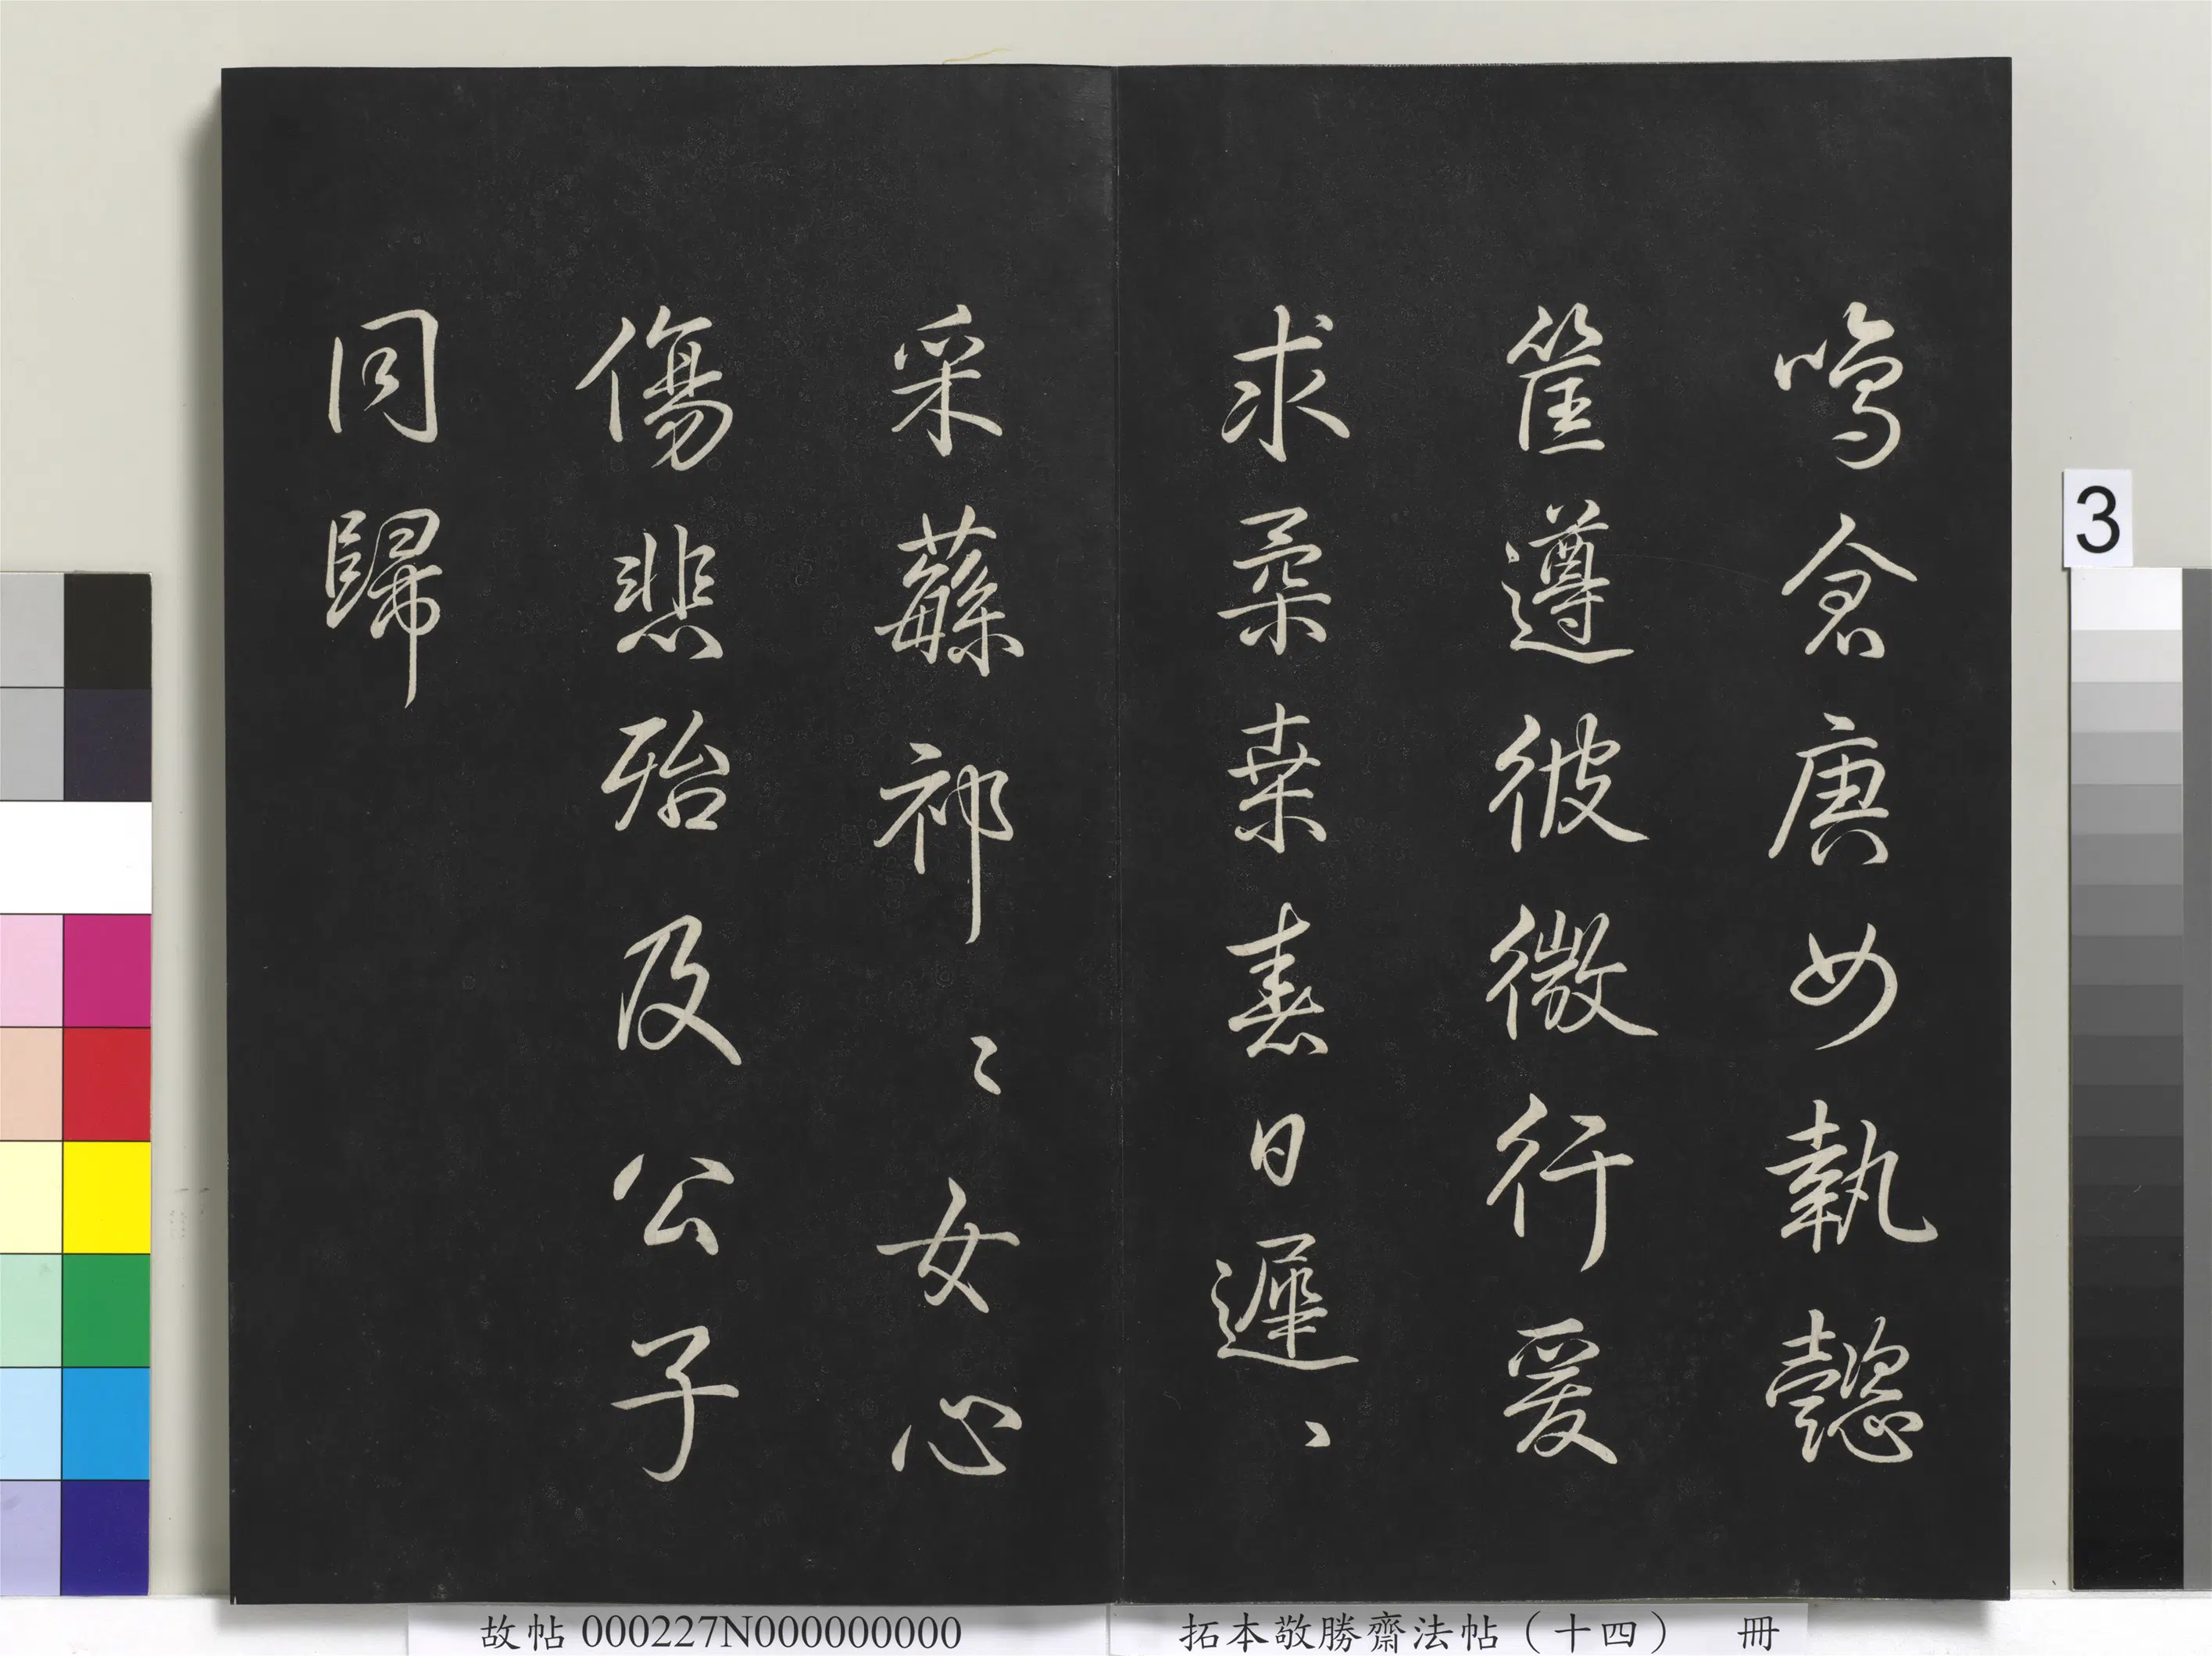 鳴倉庚女執懿
筐遵彼微行爰
求柔桑春日遲〻
采蘩祁〻女心
傷悲殆及公子
同歸
3
故帖000227N000000000
拓本敬勝齋法帖（十四） 冊